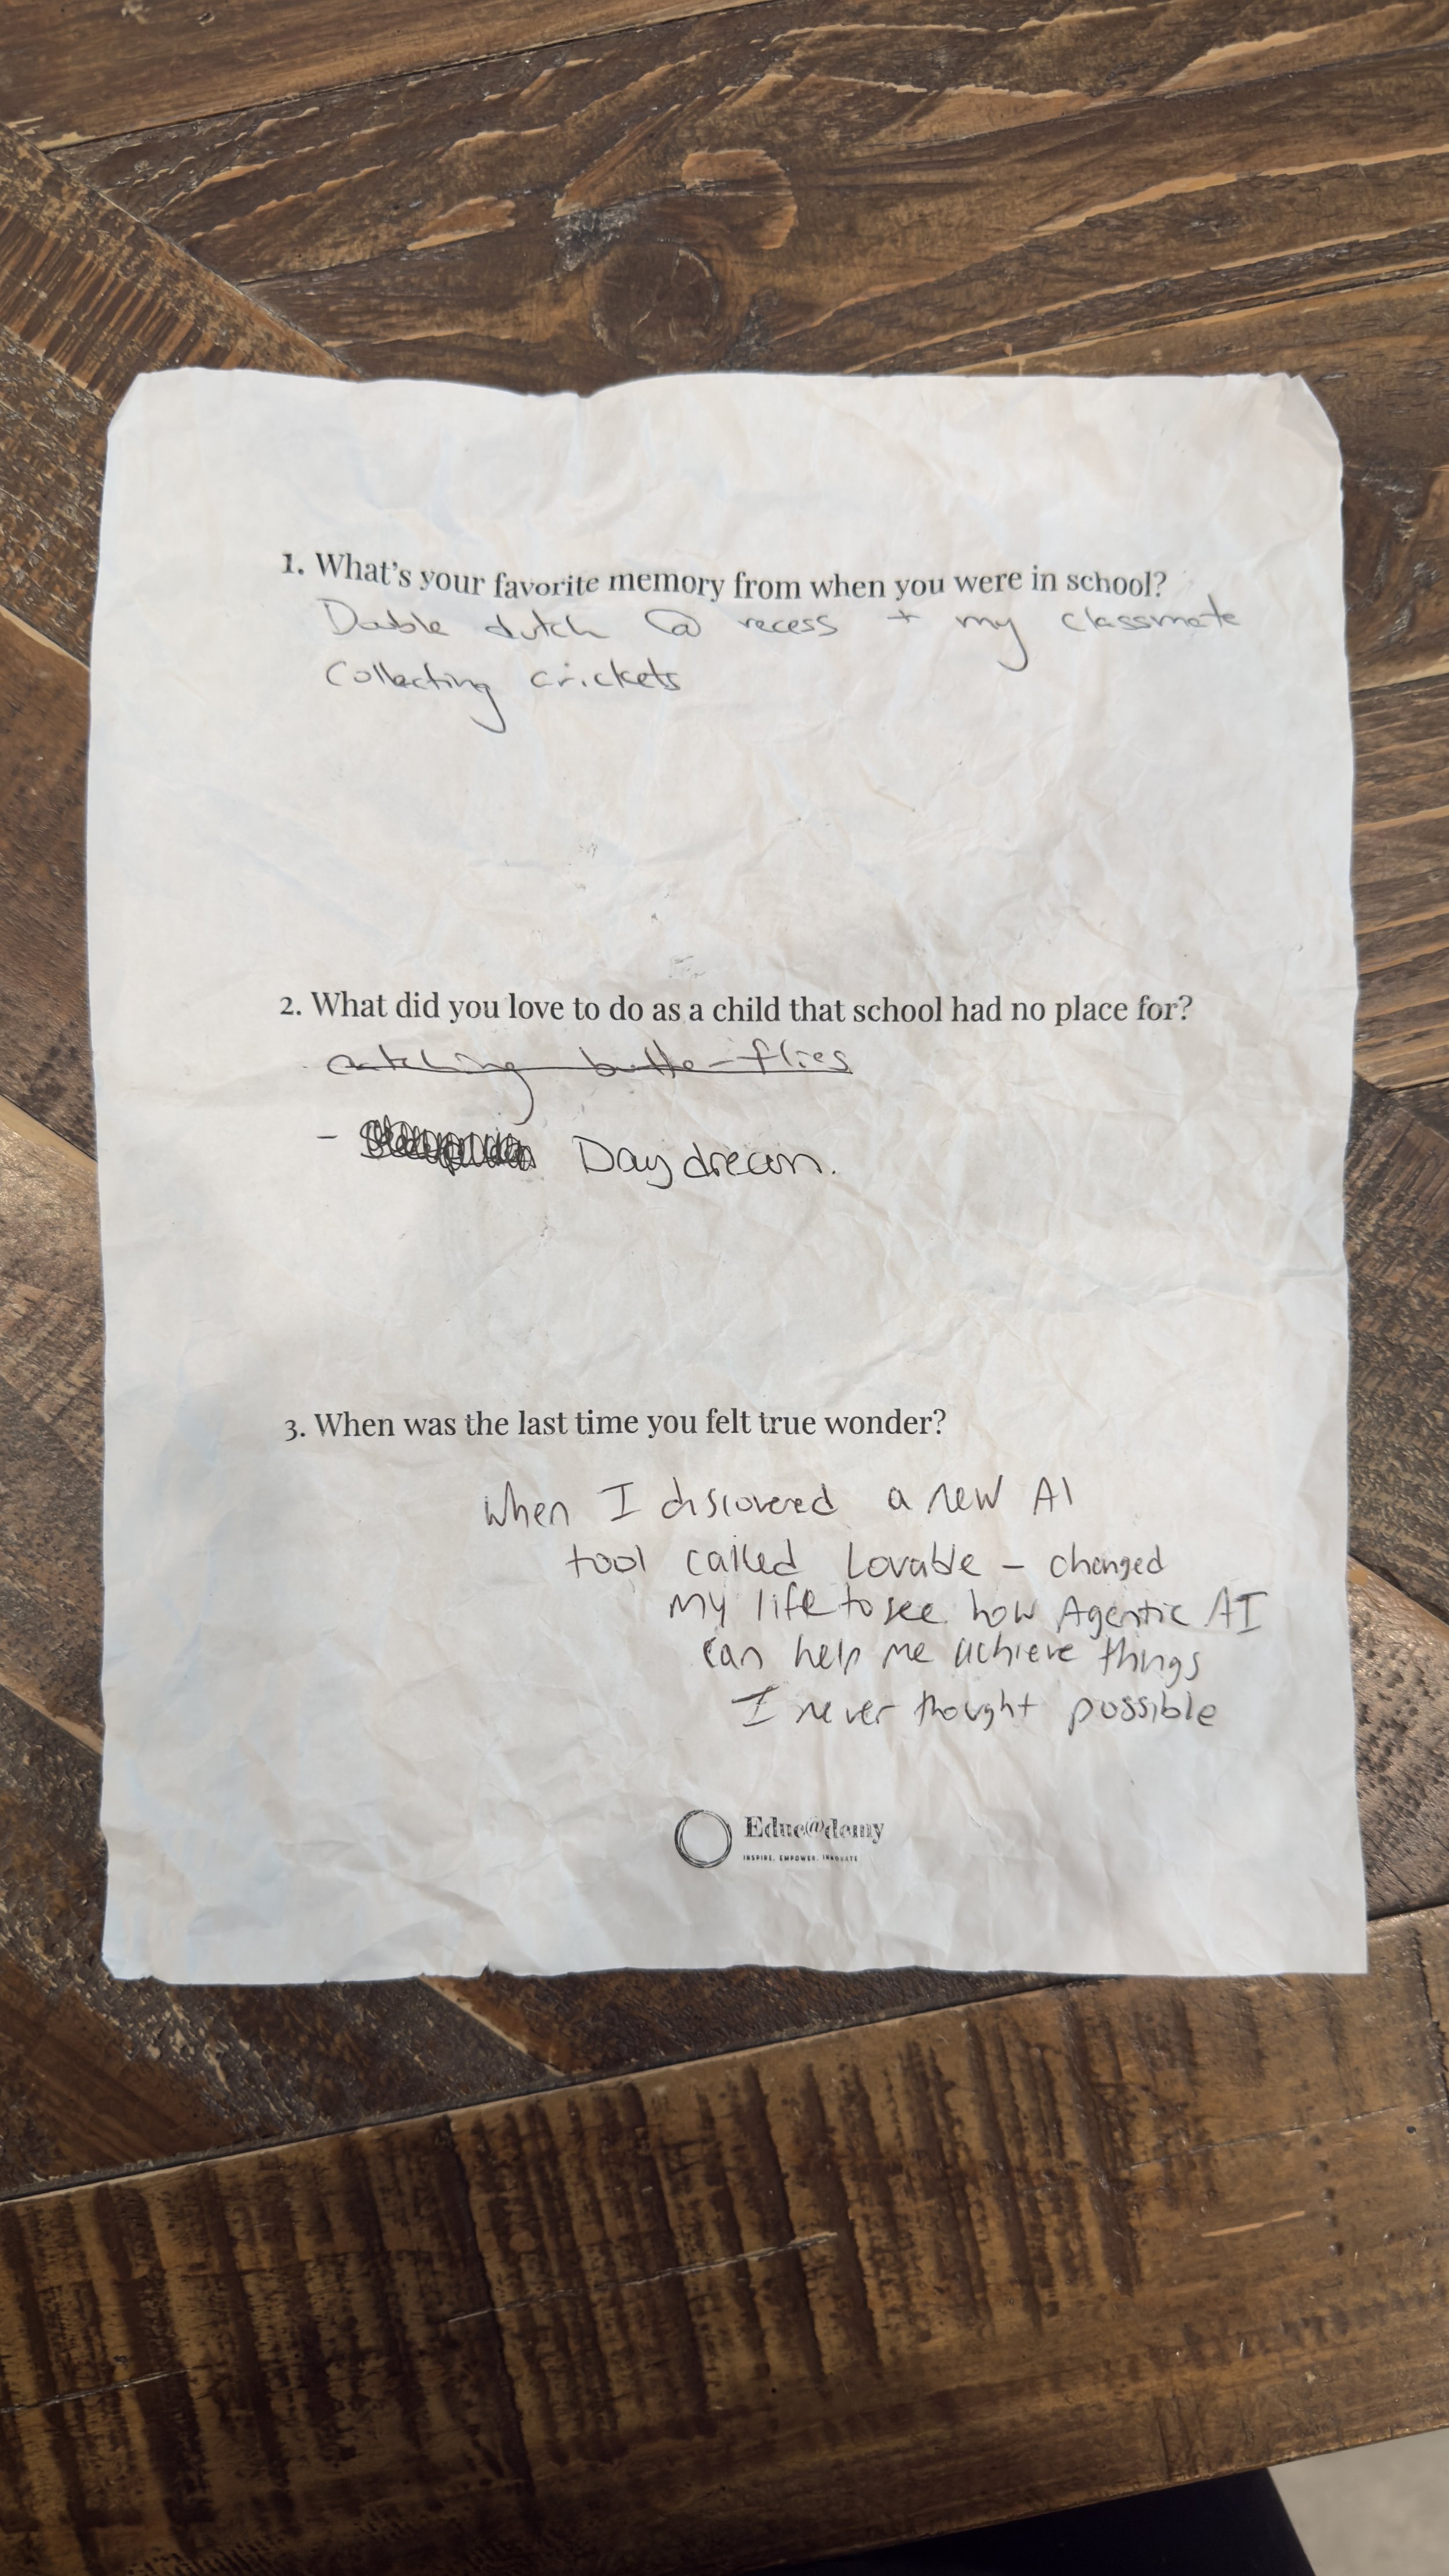 1. What's your favorite memory from when you were in school?
Double dutch @ recess + my classmate
Collecting crickets
2. What did you love to do as a child that school had no place for?
catching butterflies
- Daydream.
3. When was the last time you felt true wonder?
When I discovered a new AI
tool called Lovable - changed
my life to see how Agentic AI
can help me achieve things
I never thought possible
Educ@demy
INSPIRE. EMPOWER. INNOVATE